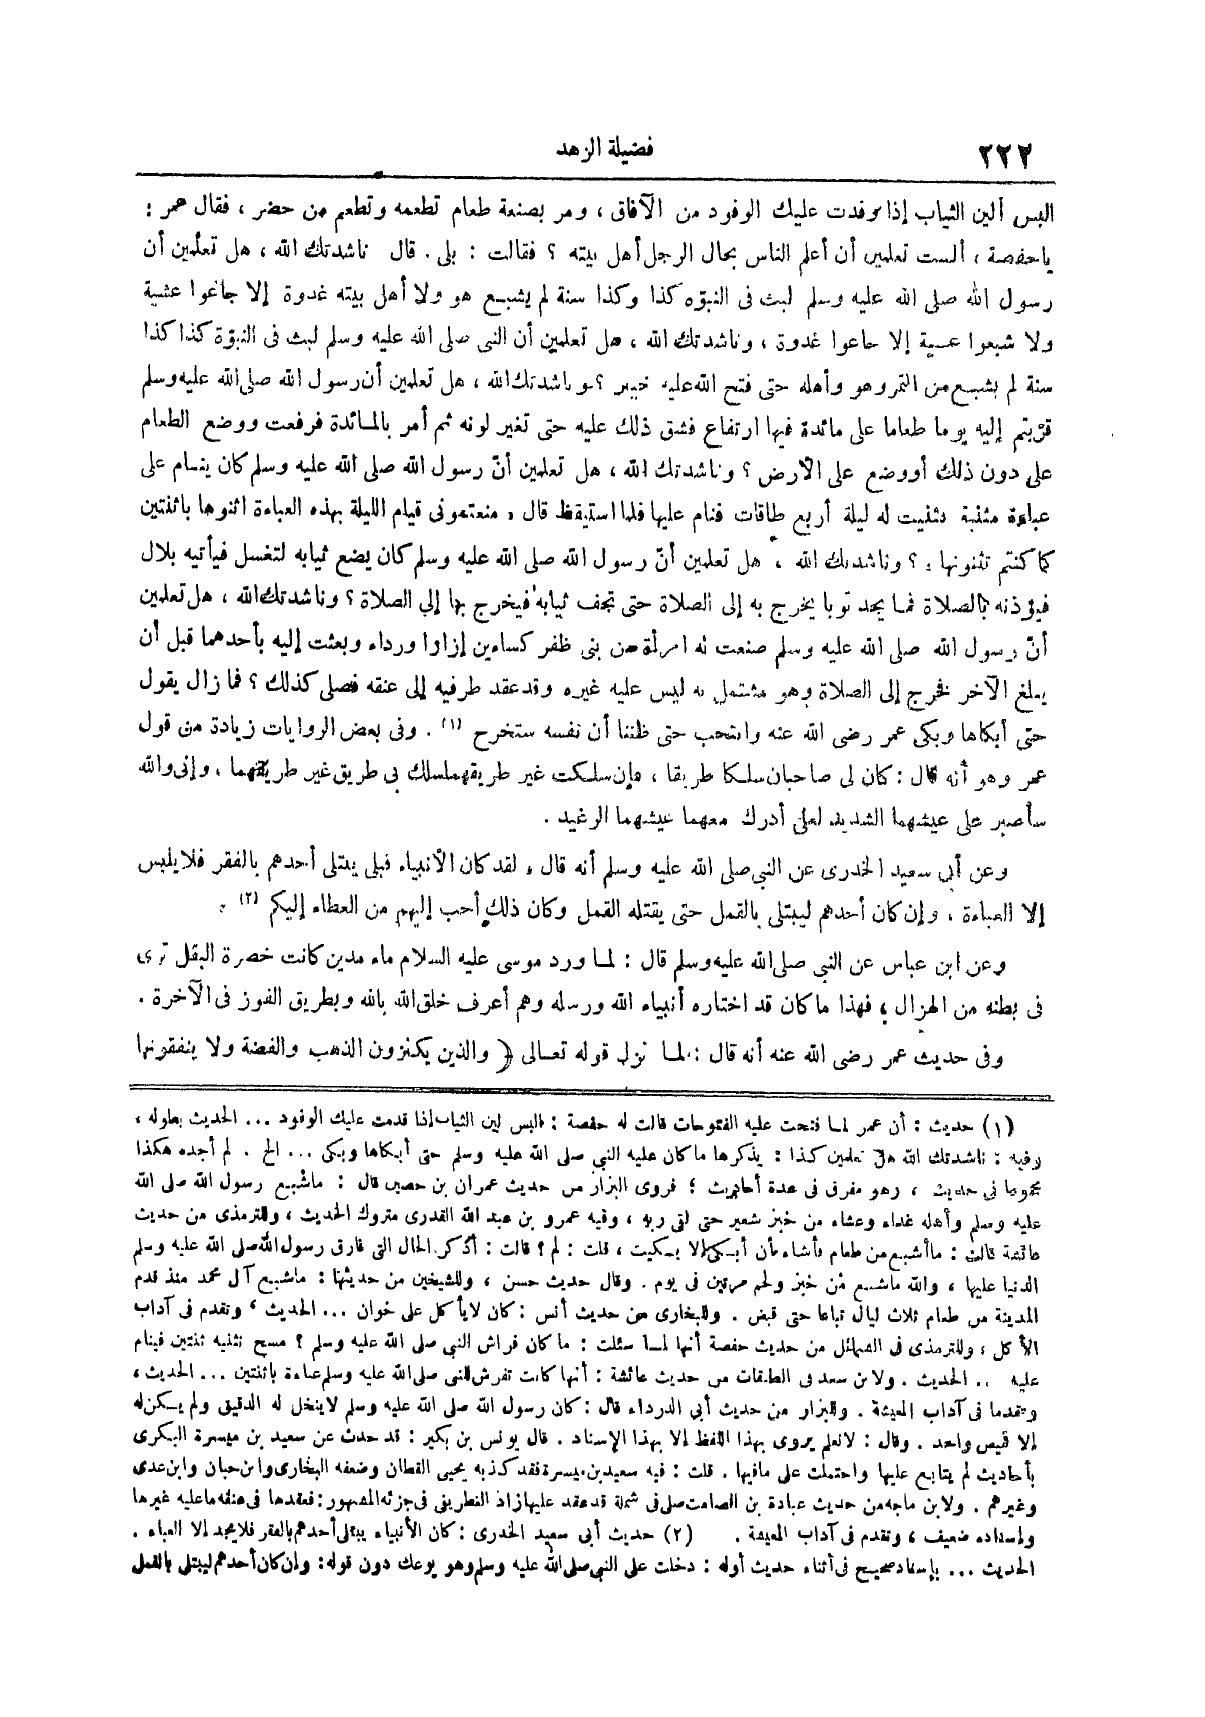 ٢٢٢
فضيلة الزهد
البس ألين الثياب إذا وفدت عليك الوفود من الآفاق ، ومر بصنعة طعام تطعمه وتطعم من حضر ، فقال عمر :
ياحفصة ، ألست تعلمين أن أعلم الناس بحال الرجل أهل بيته ؟ فقالت : بلى . قال ناشدتك الله ، هل تعلمين أن
رسول الله صلى الله عليه وسلم لبث فى النبوّة كذا وكذا سنة لم يشبع هو ولا أهل بيته غدوة إلا جاعوا عشية
ولا شبعوا عشية إلا جاعوا غدوة ، وناشدتك الله ، هل تعلمين أن النبى صلى الله عليه وسلم لبث فى النبوّة كذا كذا
سنة لم يشبع من التمر هو وأهله حتى فتح الله عليه خيبر ؟ وناشدتك الله ، هل تعلمين أن رسول الله صلى الله عليه وسلم
قرّبتم إليه يوما طعاما على مائدة فيها ارتفاع فشق ذلك عليه حتى تغير لونه ثم أمر بالمائدة فرفعت ووضع الطعام
على دون ذلك أو وضع على الأرض ؟ وناشدتك الله ، هل تعلمين أنّ رسول الله صلى الله عليه وسلم كان ينام على
عباءة مثنية فثنيت له ليلة أربع طاقات فنام عليها فلما استيقظ قال « منعتمونى قيام الليلة بهذه العباءة اثنوها باثنتين
كما كنتم تثنونها » ؟ وناشدتك الله ، هل تعلمين أنّ رسول الله صلى الله عليه وسلم كان يضع ثيابه لتغسل فيأتيه بلال
فيؤذنه بالصلاة فما يجد ثوبا يخرج به إلى الصلاة حتى تجف ثيابه فيخرج بها إلى الصلاة ؟ وناشدتك الله ، هل تعلمين
أنّ رسول الله صلى الله عليه وسلم صنعت له امرأة من بنى ظفر كساءين إزارا ورداء وبعثت إليه بأحدهما قبل أن
يبلغ الآخر فخرج إلى الصلاة وهو مشتمل به ليس عليه غيره وقد عقد طرفيه إلى عنقه فصلى كذلك ؟ فما زال يقول
حتى أبكاها وبكى عمر رضى الله عنه وانتحب حتى ظننا أن نفسه ستخرج (١) . وفى بعض الروايات زيادة من قول
عمر وهو أنه قال : كان لى صاحبان سلكا طريقا ، فإن سلكت غير طريقهما سلك بى طريق غير طريقهما ، وإنى والله
سأصبر على عيشهما الشديد لعلى أدرك معهما عيشهما الرغيد .
وعن أبى سعيد الخدرى عن النبى صلى الله عليه وسلم أنه قال « لقد كان الأنبياء قبلى يبتلى أحدهم بالفقر فلا يلبس
إلا العباءة ، وإن كان أحدهم ليبتلى بالقمل حتى يقتله القمل وكان ذلك أحب إليهم من العطاء إليكم (٢) » .
وعن ابن عباس عن النبى صلى الله عليه وسلم قال : لما ورد موسى عليه السلام ماء مدين كانت خضرة البقل ترى
فى بطنه من الهزال ، فهذا ما كان قد اختاره أنبياء الله ورسله وهم أعرف خلق الله بالله وبطريق الفوز فى الآخرة .
وفى حديث عمر رضى الله عنه أنه قال : لما نزل قوله تعالى ﴿ والذين يكنزون الذهب والفضة ولا ينفقونها
(١) حديث : أن عمر لما فتحت عليه الفتوحات قالت له حفصة : البس لين الثياب إذا قدمت عليك الوفود ... الحديث بطوله ،
وفيه : ناشدتك الله هل تعلمين كذا : يذكرها ما كان عليه النبي صلى الله عليه وسلم حتى أبكاها وبكى ... الخ . لم أجده هكذا
مجموعا فى حديث ، وهو مفرق فى عدة أحاديث ؛ فروى البزار من حديث عمران بن حصين قال : ماشبع رسول الله صلى الله
عليه وسلم وأهله غداء وعشاء من خبز شعير حتى لقى ربه ، وفيه عمرو بن عبد الله القدرى متروك الحديث ، وللترمذى من حديث
عائشة قالت : ماأشبع من طعام فأشاء أن أبكى إلا بكيت ، قلت : لم ؟ قالت : أذكر الحال التى فارق رسول الله صلى الله عليه وسلم
الدنيا عليها ، والله ماشبع من خبز ولحم مرتين فى يوم . وقال حديث حسن ، وللشيخين من حديثها : ماشبع آل محمد منذ قدم
المدينة من طعام ثلاث ليال تباعا حتى قبض . وللبخارى من حديث أنس : كان لا يأكل على خوان ... الحديث ، وتقدم فى آداب
الأكل ، وللترمذى فى الشمائل من حديث حفصة أنها لما سئلت : ما كان فراش النبي صلى الله عليه وسلم ؟ مسح نثنيه ثنتين فينام
عليه ... الحديث . ولابن سعد فى الطبقات من حديث عائشة : أنها كانت تفرش للنبى صلى الله عليه وسلم عباءة باثنتين ... الحديث ،
وتقدما فى آداب المعيشة . وللبزار من حديث أبى الدرداء قال : كان رسول الله صلى الله عليه وسلم لاينخل له الدقيق ولم يكن له
إلا قميص واحد . وقال : لانعلم يروى بهذا اللفظ إلا بهذا الإسناد . قال يونس بن بكير : قد حدث عن سعيد بن ميسرة البكرى
بأحاديث لم يتابع عليها واحتملت على مافيها . قلت : فيه سعيد بن ميسرة فقد كذبه يحيى القطان وضعفه البخارى وابن حبان وابن عدى
وغيرهم . ولابن ماجه من حديث عبادة بن الصامت صلى فى شملة قد عقد عليها زاد الغطريفى فى جزئه المشهور : فعقدها فى عنقه ماعليه غيرها
وإسناده ضعيف ، وتقدم فى آداب المعيشة . (٢) حديث أبى سعيد الخدرى : كان الأنبياء يبتلى أحدهم بالفقر فلا يجد إلا العباء .
الحديث ... بإسناد صحيح فى أثناء حديث أوله : دخلت على النبى صلى الله عليه وسلم وهو يوعك دون قوله : وإن كان أحدهم ليبتلى بالقمل